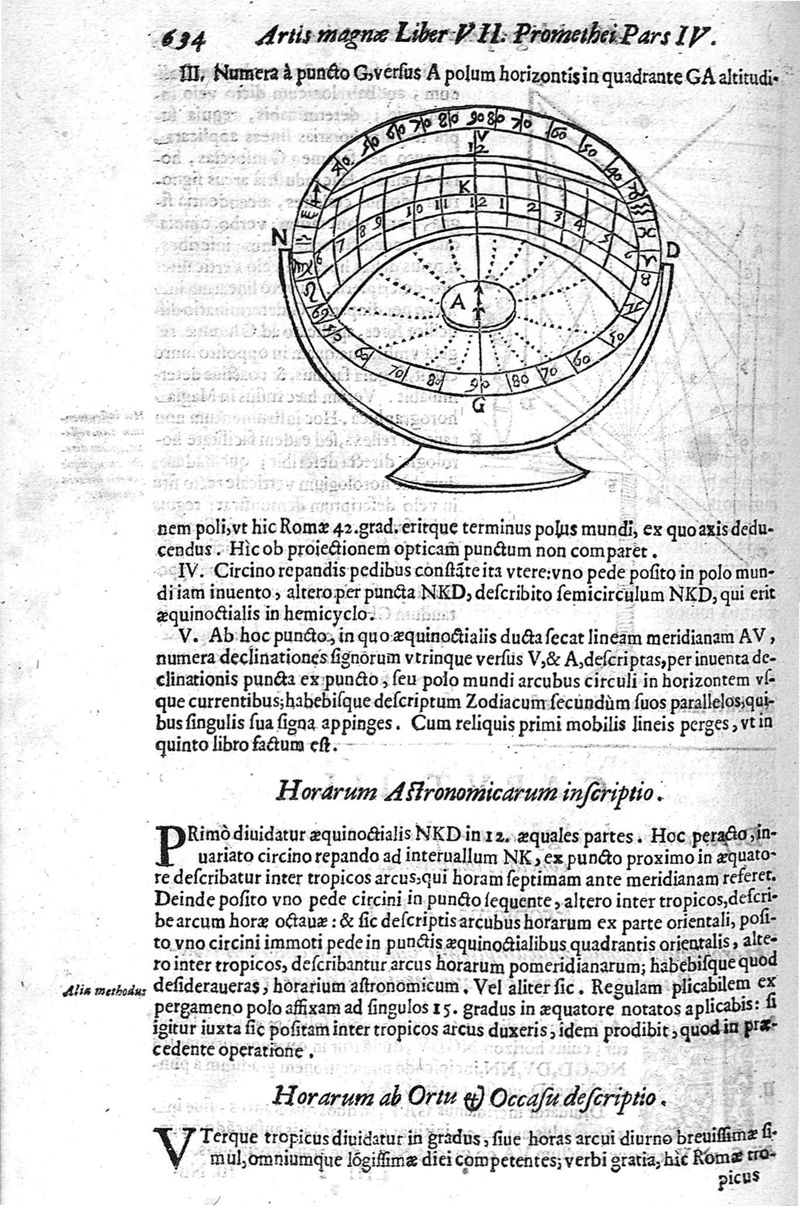 634 Artis magnæ Liber VII. Promethei Pars IV.
III. Numera à puncto G, versus A polum horizontis in quadrante GA altitudi-
40 50 60 70 80 90 80 70 60 50 40
V
12
K
6 7 8 9 10 11 12 1 2 3 4 5 6
N D
A
60 70 80 90 80 70 60 50
G
nem poli, vt hic Romæ 42. grad. eritque terminus polus mundi, ex quo axis dedu-
cendus. Hic ob proiectionem opticam punctum non comparet.
IV. Circino repandis pedibus constāte ita vtere: vno pede posito in polo mun-
di iam inuento, altero per puncta NKD, describito semicirculum NKD, qui erit
æquinoctialis in hemicyclo.
V. Ab hoc puncto, in quo æquinoctialis ducta secat lineam meridianam AV,
numera declinationes signorum vtrinque versus V, & A, descriptas, per inuenta de-
clinationis puncta ex puncto, seu polo mundi arcubus circuli in horizontem vs-
que currentibus; habebisque descriptum Zodiacum secundùm suos parallelos, qui-
bus singulis sua signa appinges. Cum reliquis primi mobilis lineis perges, vt in
quinto libro factum est.
Horarum Astronomicarum inscriptio.
PRimò diuidatur æquinoctialis NKD in 12. æquales partes. Hoc peracto, in-
uariato circino repando ad interuallum NK, ex puncto proximo in æquato-
re describatur inter tropicos arcus, qui horam septimam ante meridianam referet.
Deinde posito vno pede circini in puncto sequente, altero inter tropicos, descri-
be arcum horæ octauæ: & sic descriptis arcubus horarum ex parte orientali, posi-
to vno circini immoti pede in punctis æquinoctialibus quadrantis orientalis, alte-
ro inter tropicos, describantur arcus horarum pomeridianarum; habebisque quod
Alia methodus desideraueras, horarium astronomicum. Vel aliter sic. Regulam plicabilem ex
pergameno polo affixam ad singulos 15. gradus in æquatore notatos aplicabis: si
igitur iuxta sic positam inter tropicos arcus duxeris, idem prodibit, quod in præ-
cedente operatione.
Horarum ab Ortu & Occasu descriptio.
VTerque tropicus diuidatur in gradus, siue horas arcui diurno breuissimæ si-
mul, omniumque lōgissimæ diei competentes; verbi gratia, hic Romæ tro-
picus